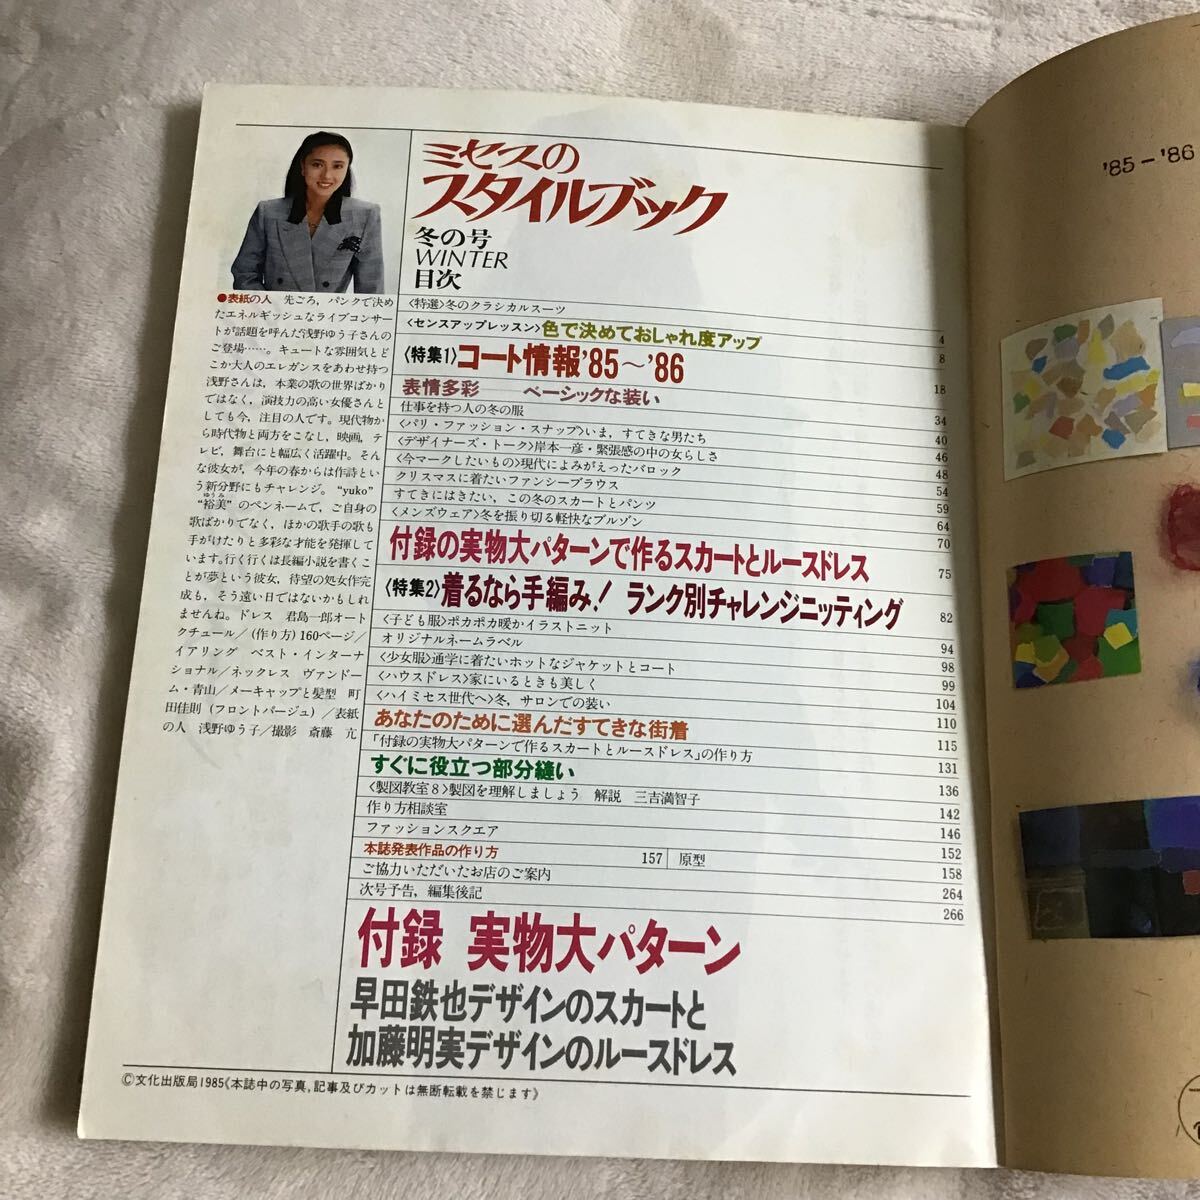 ミセスの
スタイルブック
冬の号
WINTER
目次
●表紙の人　先ごろ，パンクで決め
たエネルギッシュなライブコンサー
トが話題を呼んだ浅野ゆう子さんの
ご登場……。キュートな雰囲気とど
こか大人のエレガンスをあわせ持つ
浅野さんは，本業の歌の世界ばかり
ではなく，演技力の高い女優さんと
しても今，注目の人です。現代物か
ら時代物と両方をこなし，映画，テ
レビ，舞台にと幅広く活躍中。そん
な彼女が，今年の春からは作詩とい
う新分野にもチャレンジ。“yuko”
ゆうみ
“裕美”のペンネームで，ご自身の
歌ばかりでなく，ほかの歌手の歌も
手がけたりと多彩な才能を発揮して
います。行く行くは長編小説を書くこ
とが夢という彼女，待望の処女作完
成も，そう遠い日ではないかもしれ
ませんね。ドレス　君島一郎オート
クチュール／(作り方)160ページ／
イアリング　ベスト・インターナ
ショナル／ネックレス　ヴァンドー
ム・青山／メーキャップと髪型　町
田佳則(フロントパージュ)／表紙
の人　浅野ゆう子／撮影　斎藤　亢
〈特選〉冬のクラシカルスーツ 4
〈センスアップレッスン〉色で決めておしゃれ度アップ 8
〈特集1〉コート情報'85〜'86 18
表情多彩　ベーシックな装い 34
仕事を持つ人の冬の服 40
〈パリ・ファッション・スナップ〉いま，すてきな男たち 46
〈デザイナーズ・トーク〉岸本一彦・緊張感の中の女らしさ 48
〈今マークしたいもの〉現代によみがえったバロック 54
クリスマスに着たいファンシーブラウス 59
すてきにはきたい，この冬のスカートとパンツ 64
〈メンズウェア〉冬を振り切る軽快なブルゾン 70
付録の実物大パターンで作るスカートとルースドレス 75
〈特集2〉着るなら手編み！ランク別チャレンジニッティング 82
〈子ども服〉ポカポカ暖かイラストニット 94
オリジナルネームラベル 98
〈少女服〉通学に着たいホットなジャケットとコート 99
〈ハウスドレス〉家にいるときも美しく 104
〈ハイミセス世代へ〉冬，サロンでの装い 110
あなたのために選んだすてきな街着 115
「付録の実物大パターンで作るスカートとルースドレス」の作り方 131
すぐに役立つ部分縫い 136
〈製図教室8〉製図を理解しましょう　解説　三吉満智子 142
作り方相談室 146
ファッションスクエア 152
本誌発表作品の作り方 157 原型 158
ご協力いただいたお店のご案内 264
次号予告，編集後記 266
付録　実物大パターン
早田鉄也デザインのスカートと
加藤明実デザインのルースドレス
©文化出版局1985《本誌中の写真，記事及びカットは無断転載を禁じます》
'85－'86